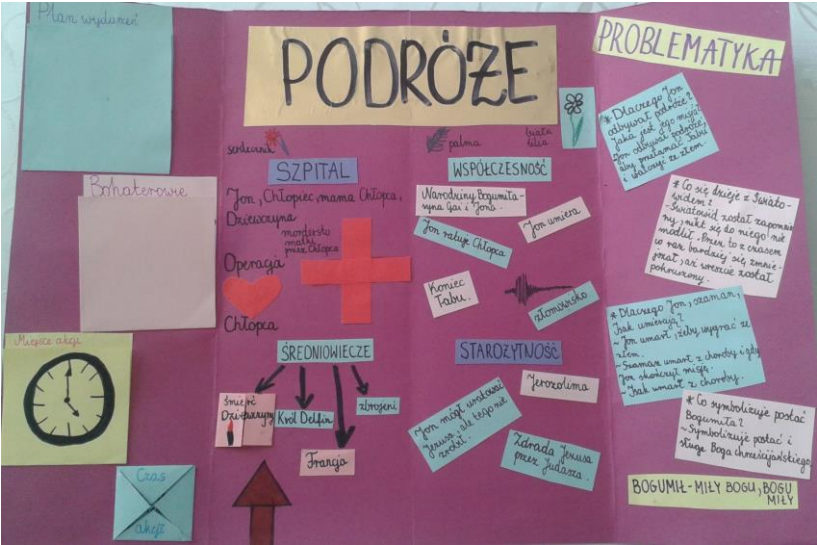 Plan wydarzeń
Bohaterowie
Miejsce akcji
Czas
akcji
PODRÓŻE
palma
biała
lilia
SZPITAL
Jon, Chłopiec, mama Chłopca,
Dziewczyna
morderstwo
matki
przez Chłopca
Operacja
Chłopca
WSPÓŁCZESNOŚĆ
Narodziny Bogumiła-
syna Gai i Jona.
Jon umiera
Jon ratuje Chłopca
Koniec
Tabu.
ŚREDNIOWIECZE
śmierć
Dziewczyny
Król Delfin
zbrojeni
Francja
STAROŻYTNOŚĆ
Jerozolima
Jon mógł uratować
Jezusa, ale tego nie
zrobił.
Zdrada Jezusa
przez Judasza.
PROBLEMATYKA
* Dlaczego Jon
odbywał podróże?
Jaka jest jego misja?
Jon odbywał podróże,
aby przełamać Tabu
i walczyć ze złem.
* Co się dzieje z Świato-
widem?
-Światowid został zapomnia-
ny, nikt się do niego nie
modlił. Przez to z czasem
co raz bardziej się zmnie-
jszał, aż wreszcie został
pokruszony.
* Dlaczego Jon, szaman,
Isak umierają?
~ Jon umarł, żeby wygrać ze
złem.
~ Szaman umarł z choroby i gdy
Jon skończył misję.
~ Isak umarł z choroby.
* Co symbolizuje postać
Bogumiła?
~ Symbolizuje postać i
sługę Boga chrześcijańskiego
BOGUMIŁ-MIŁY BOGU, BOGU
MIŁY